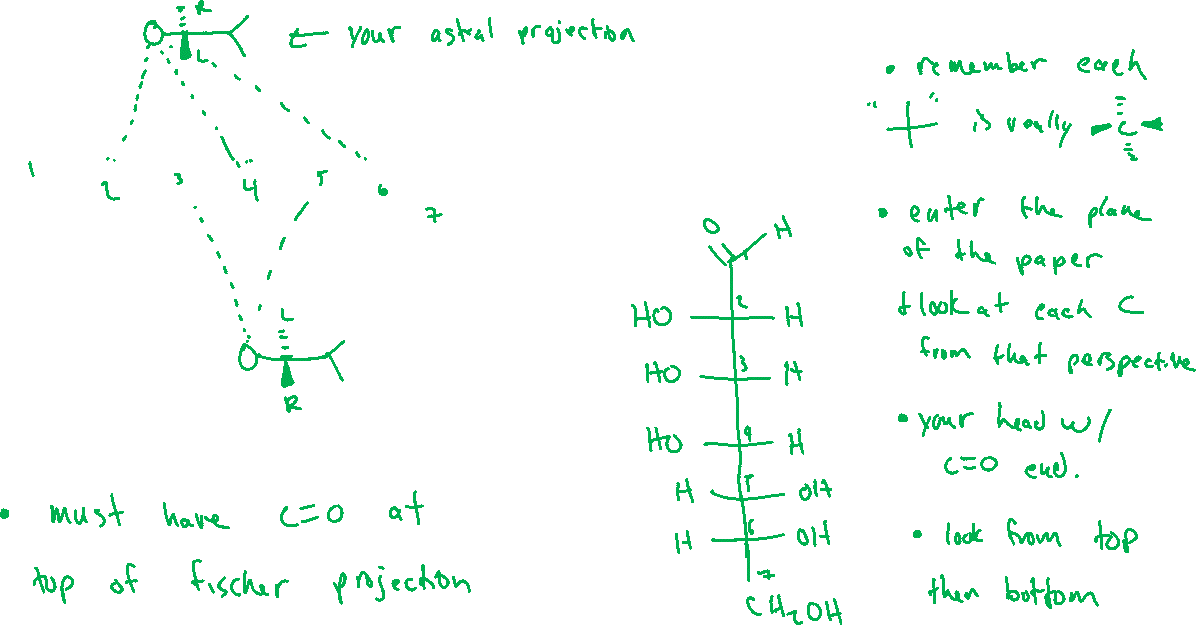 R
← your astral projection
L
1 2 3 4 5 6 7
L
R
• must have C=O at
top of fischer projection
O H
2
HO H
3
HO H
4
HO H
5
H OH
6
H OH
7
CH₂OH
• remember each
" " is really C
• enter the plane
of the paper
+ look at each C
from that perspective
• your head w/
C=O end.
• look from top
then bottom